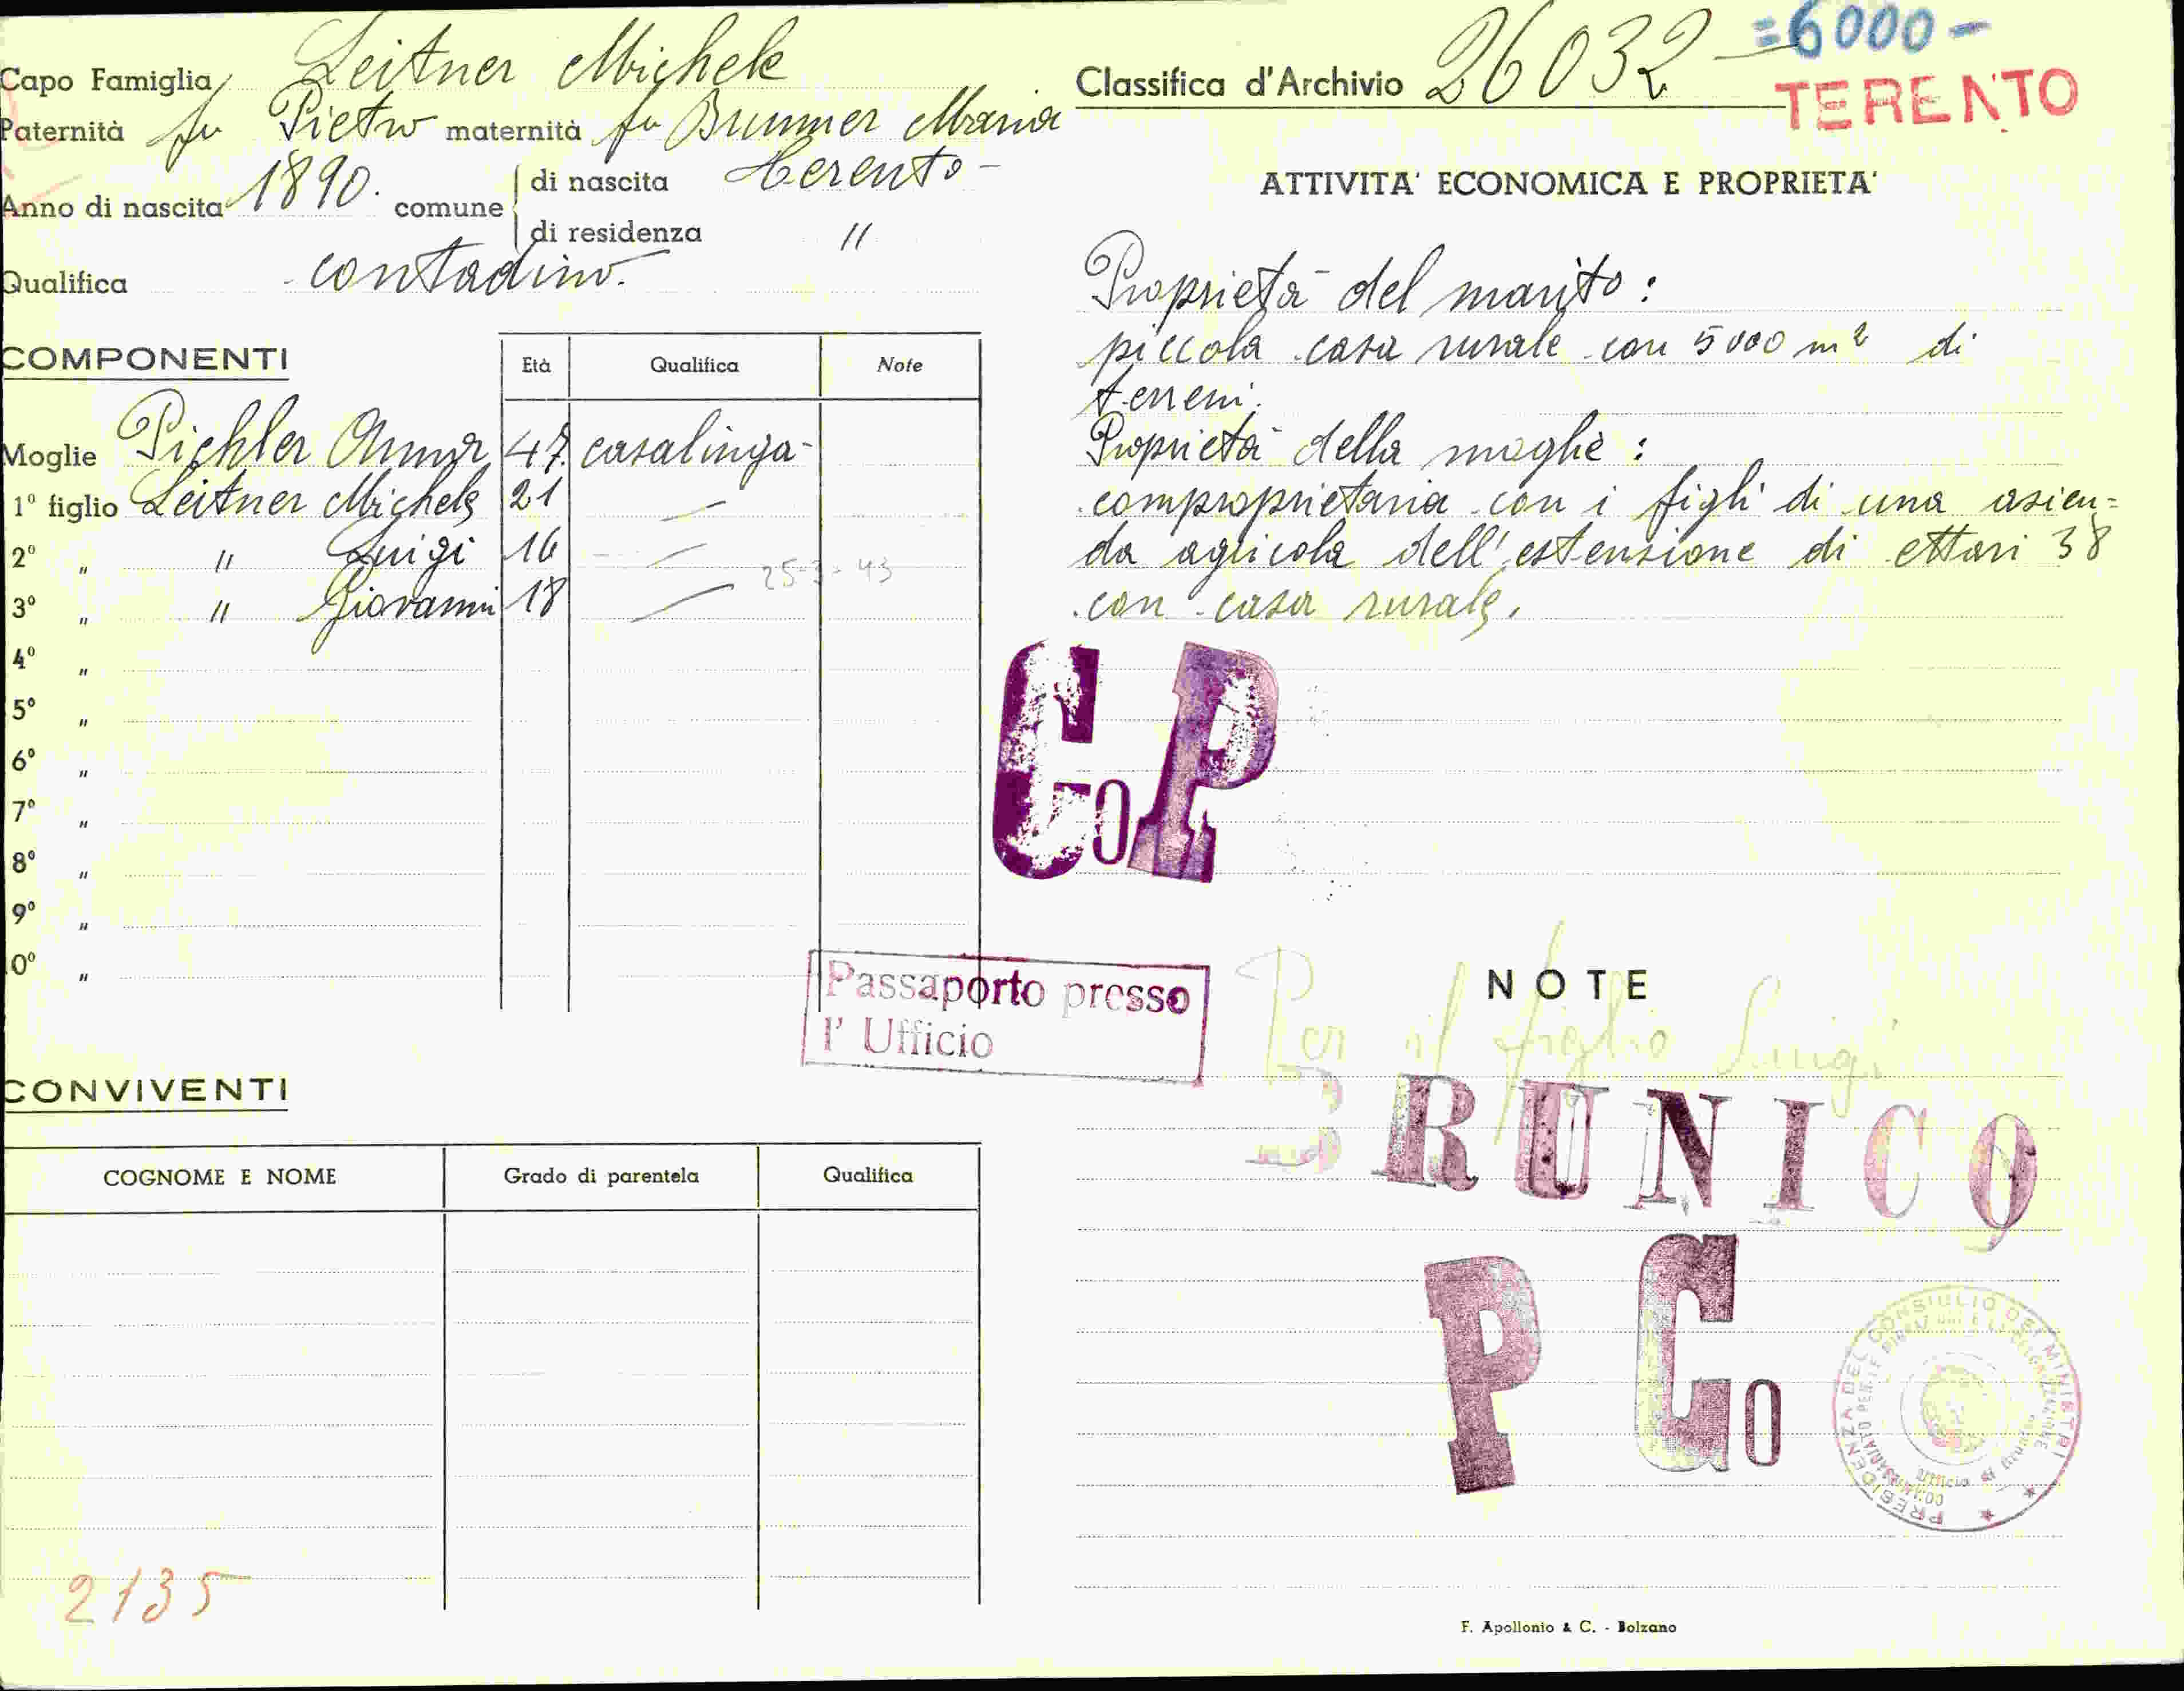 Capo Famiglia Leitner Michele
Paternità fu Pietro maternità fu Brunner Maria
Anno di nascita 1890. comune di nascita Terento -
di residenza "
Qualifica contadino.
COMPONENTI Età Qualifica Note
Moglie Pichler Anna 47. casalinga -
1º figlio Leitner Michele 21 —
2º " " Luigi 16 —
25-3-43
3º " " Giovanni 18 —
4º "
5º "
6º "
7º "
8º "
9º "
0º "
Passaporto presso
l' Ufficio
CONVIVENTI
COGNOME E NOME Grado di parentela Qualifica
2135
Classifica d'Archivio 26032 — =6000-
TERENTO
ATTIVITA' ECONOMICA E PROPRIETA'
Proprietà del marito:
piccola casa rurale con 5000 m² di
terreni.
Proprietà della moglie:
comproprietaria con i figli di una azien=
da agricola dell'estensione di ettari 38
con casa rurale.
Co P
NOTE
Per il figlio Luigi
BRUNICO
P Co
PRESIDENZA DEL CONSIGLIO DEI MINISTRI
Ufficio di Brunico
F. Apollonio & C. - Bolzano